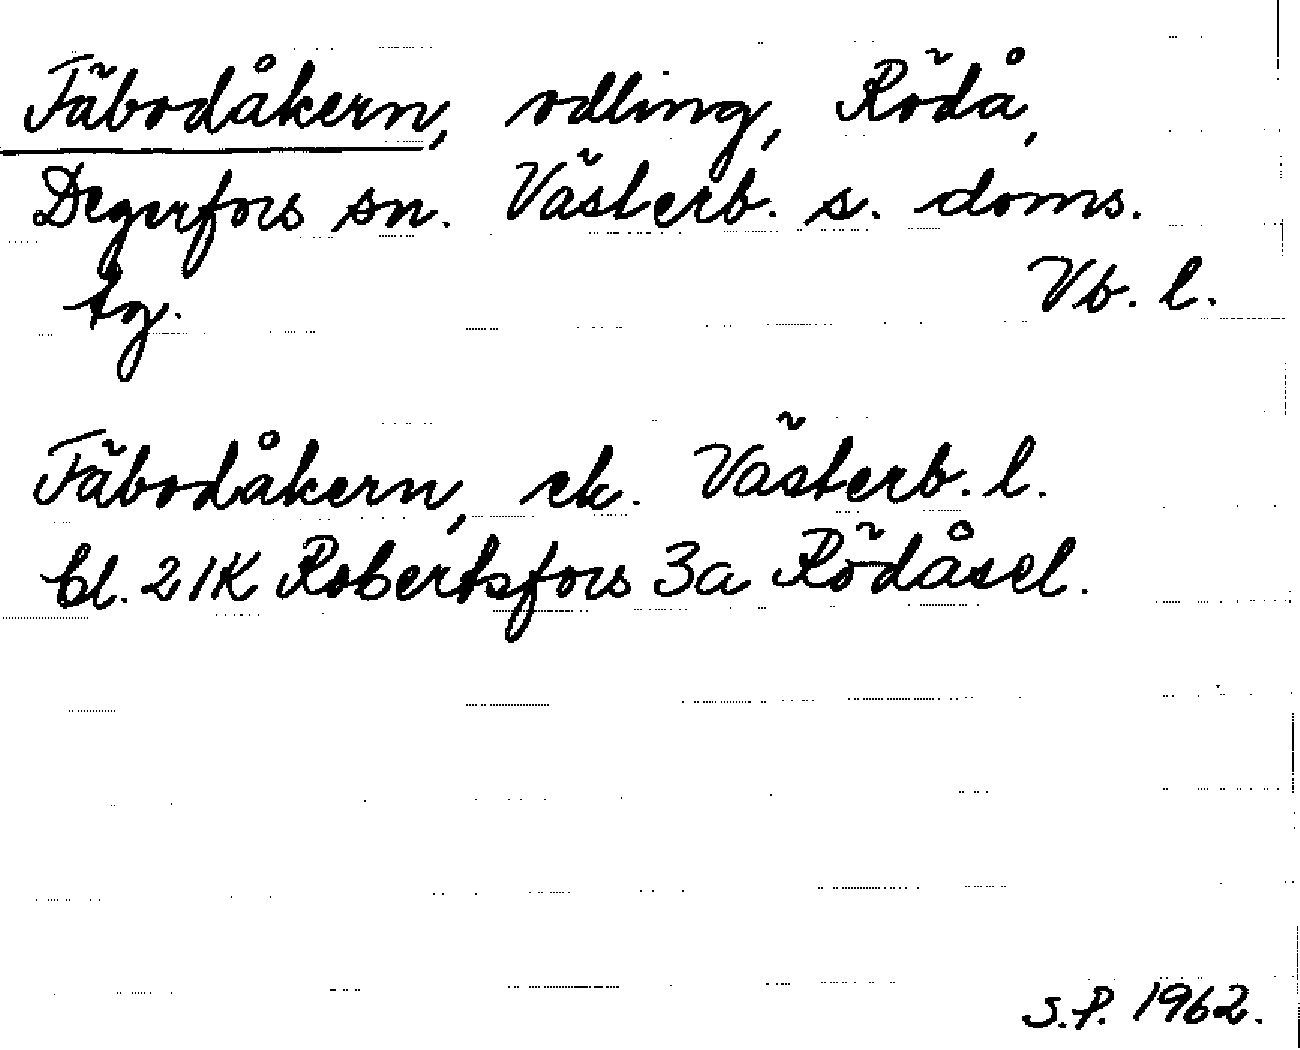 Fäbodåkern, odling, Rödå,
Degerfors sn. Västerb. s. doms.
tg. Vb. l.
Fäbodåkern, ek. Västerb. l.
bl. 21K Robertsfors 3a Rödåsel.
S.P. 1962.